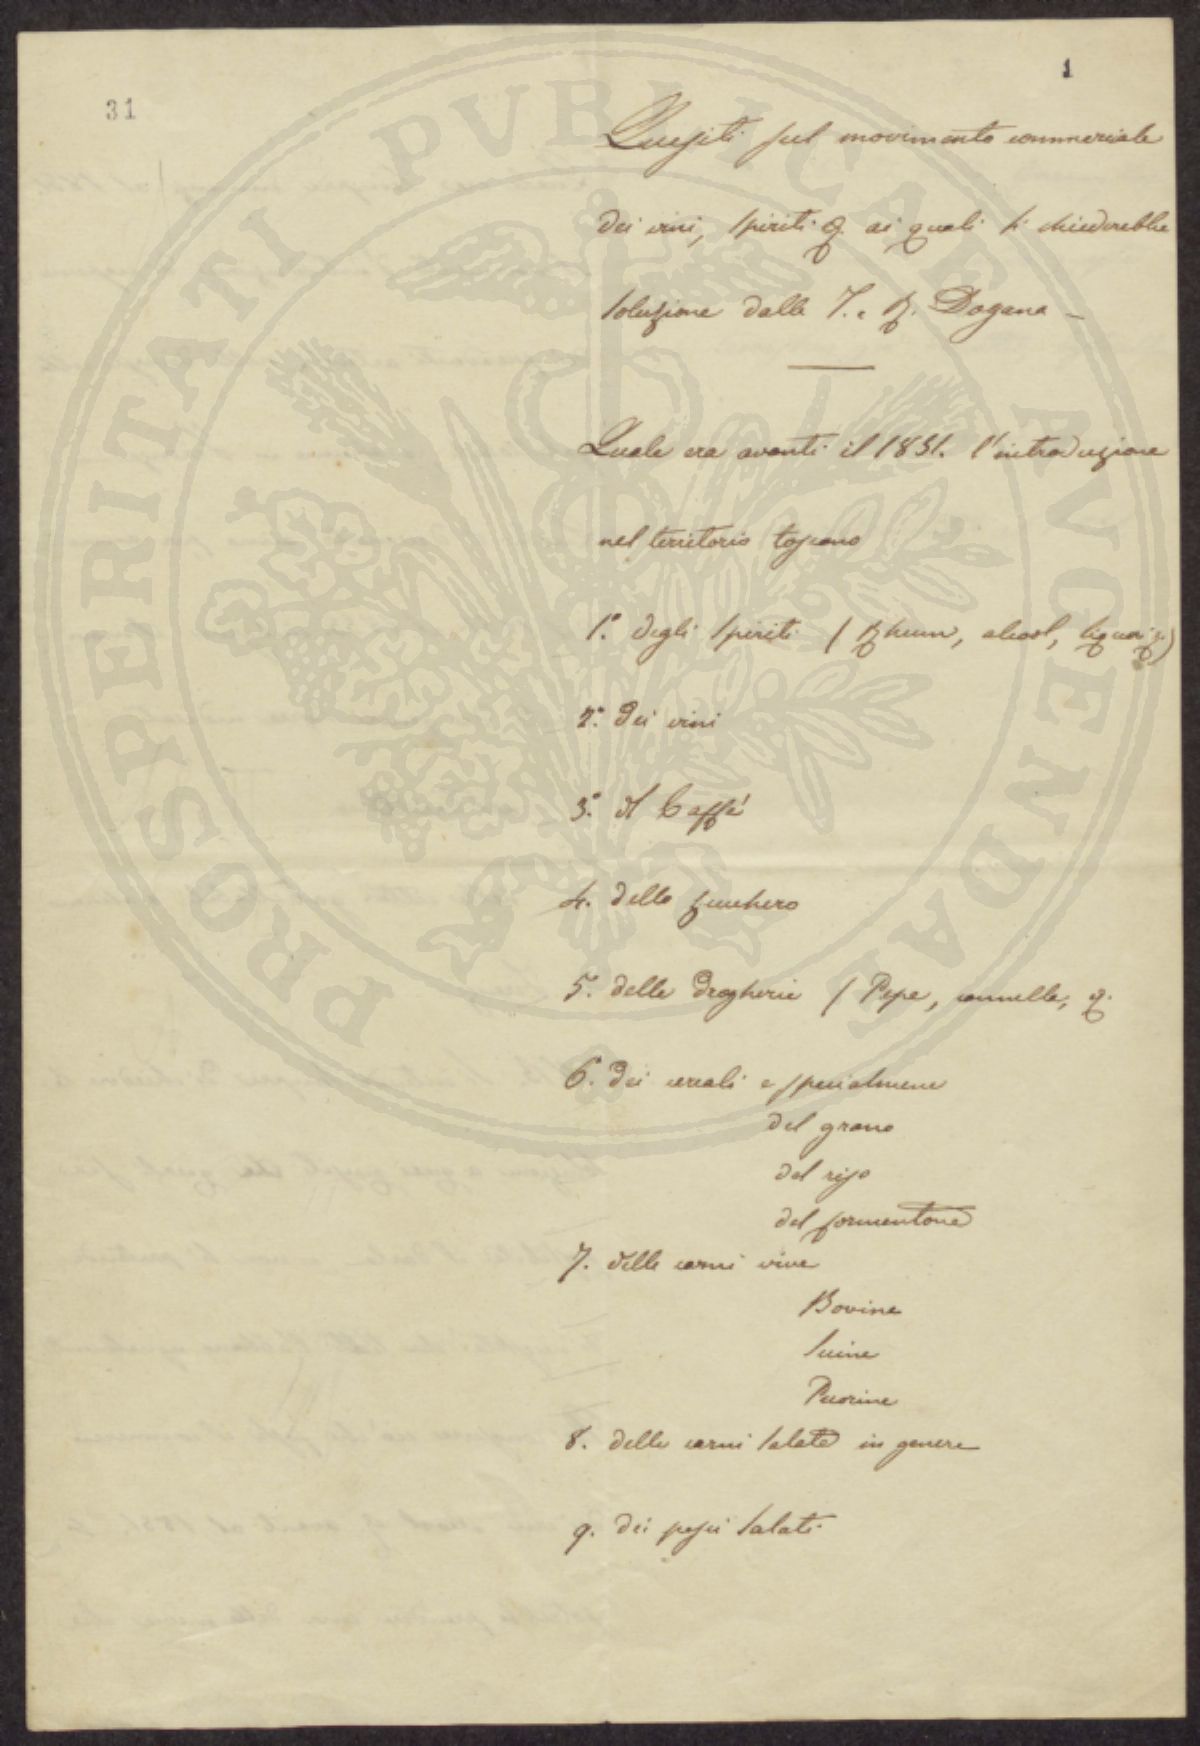 1
31
Quesiti sul movimento commerciale
dei vini, spiriti &. ai quali si chiederebbe
soluzione dalla I. e R. Dogana —
Quale era avanti il 1851. l'introduzione
nel territorio toscano
1.° degli spiriti ( Rhum, alcool, liquori &.)
2.° dei vini
3.° del Caffé
4. dello zucchero
5. delle drogherie ( Pepe, cannella, &.
6. dei cereali e specialmene
del grano
del riso
del formentone
7. delle carni vive
Bovine
Suine
Pecorine
8. delle carni salate in genere
9. dei pesci salati
PROSPERITATI PVBLICAE AVGENDAE